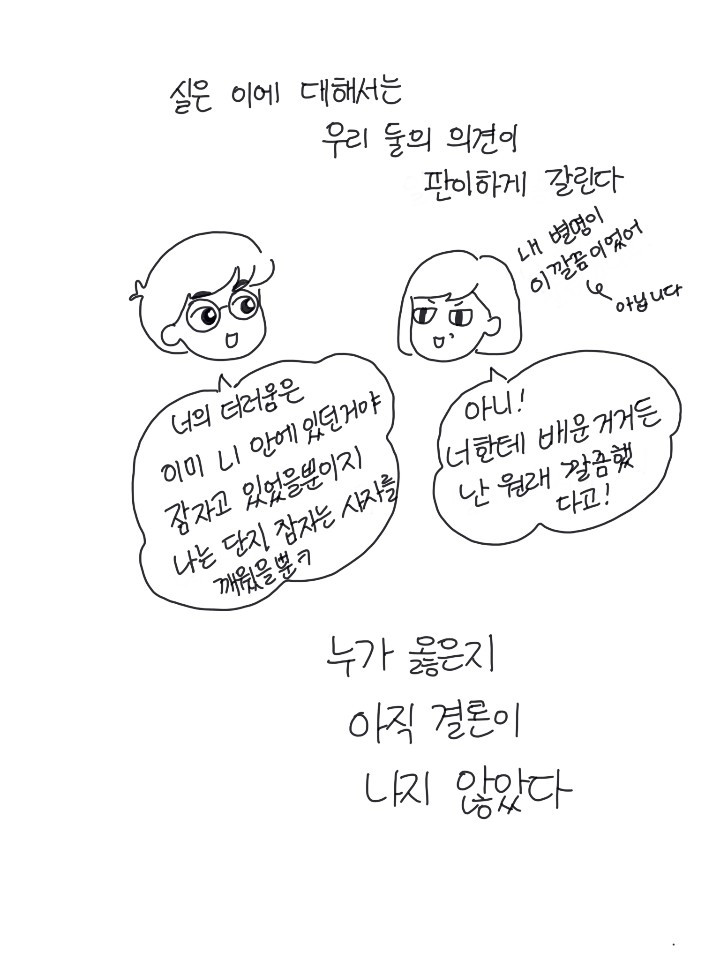 실은 이에 대해서는
우리 둘의 의견이
판이하게 갈린다
내 별명이
이깔끔이었어
아닙니다
너의 더러움은
이미 니 안에 있던거야
잠자고 있었을뿐이지
나는 단지 잠자는 사자를
깨웠을뿐ㅋ
아니!
너한테 배운거거든
난 원래 깔끔했
다고!
누가 옳은지
아직 결론이
나지 않았다